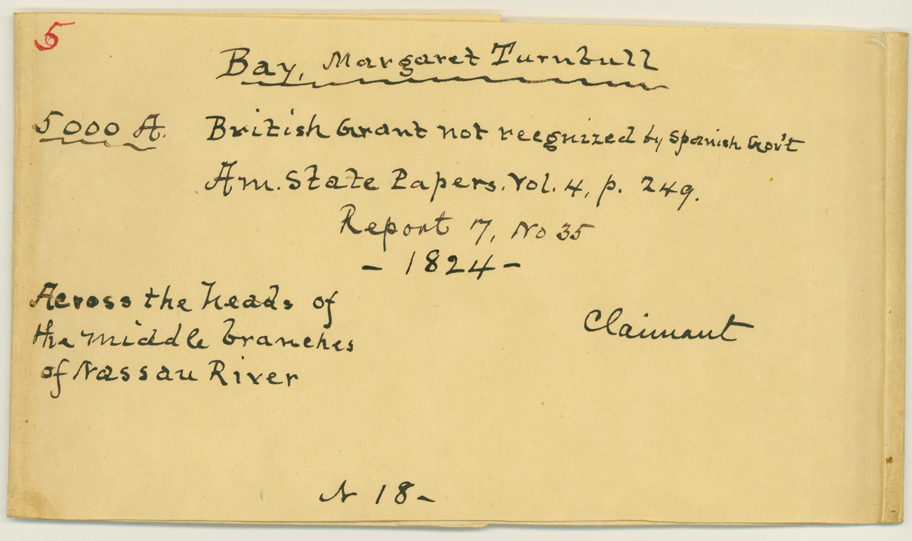 5
Bay, Margaret Turnbull
5000 A. British Grant not reegnized by Spanish Gov't
Am. State Papers. Vol. 4, p. 249.
Report 7, No 35
- 1824 -
Across the heads of
the middle branches
of Nassau River
Claimant
N 18-